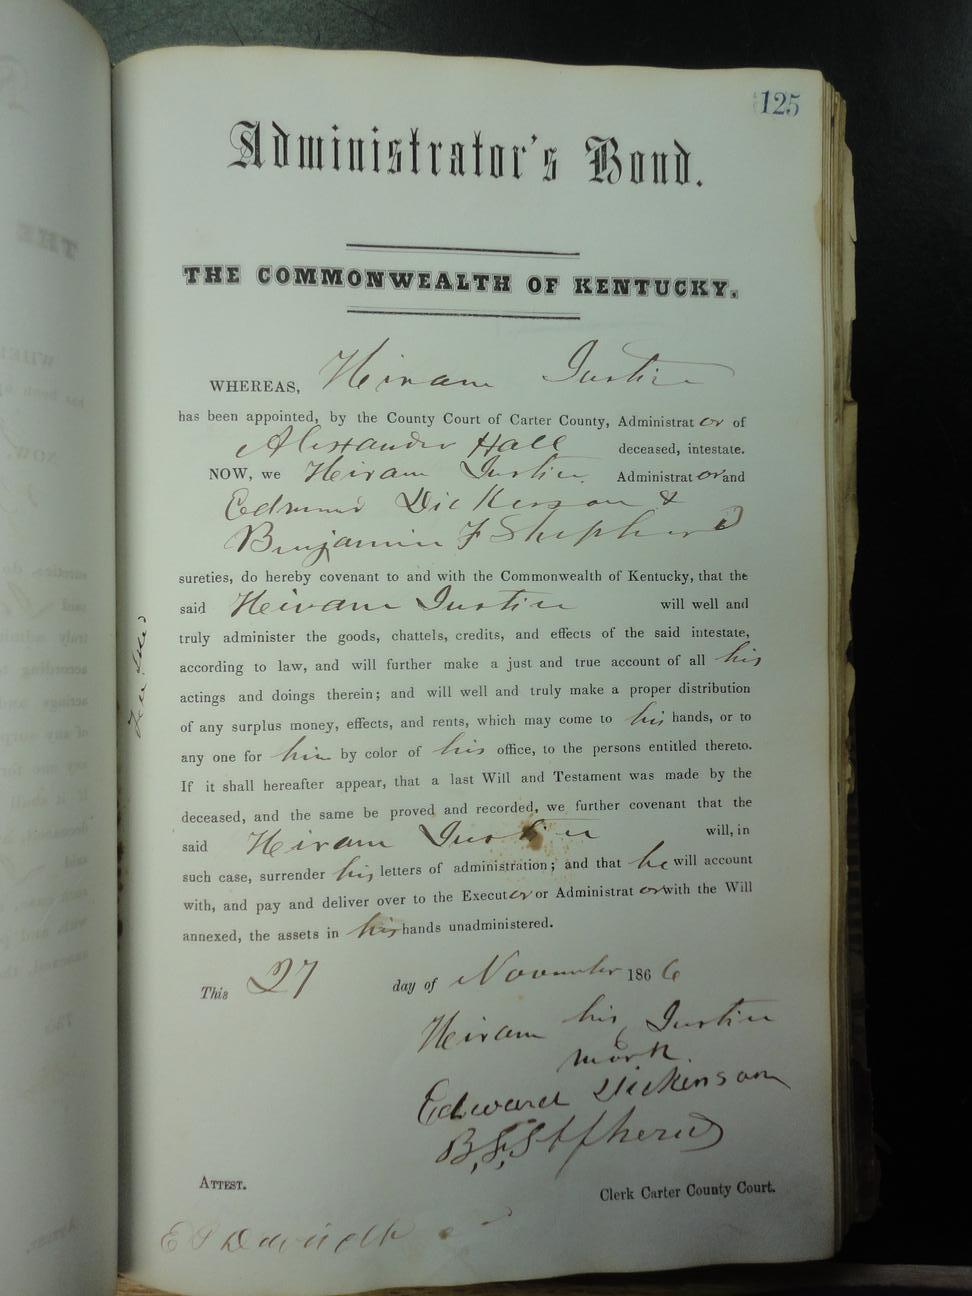 125
Administrator's Bond.
THE COMMONWEALTH OF KENTUCKY.
WHEREAS, Hiram Justice
has been appointed, by the County Court of Carter County, Administrator of
Alexander Hall deceased, intestate.
NOW, we Hiram Justice Administrator and
Edmund Dickerson &
Benjamin F Shepherd
sureties, do hereby covenant to and with the Commonwealth of Kentucky, that the
said Hiram Justice will well and
truly administer the goods, chattels, credits, and effects of the said intestate,
according to law, and will further make a just and true account of all his
actings and doings therein; and will well and truly make a proper distribution
of any surplus money, effects, and rents, which may come to his hands, or to
any one for him by color of his office, to the persons entitled thereto.
If it shall hereafter appear, that a last Will and Testament was made by the
deceased, and the same be proved and recorded, we further covenant that the
said Hiram Justice will, in
such case, surrender his letters of administration; and that he will account
with, and pay and deliver over to the Executor or Administrator with the Will
annexed, the assets in his hands unadministered.
This 27 day of November 1866
Hiram his Justice
mark.
Edward Dickenson
B, F, 
ATTEST.
Clerk Carter County Court.